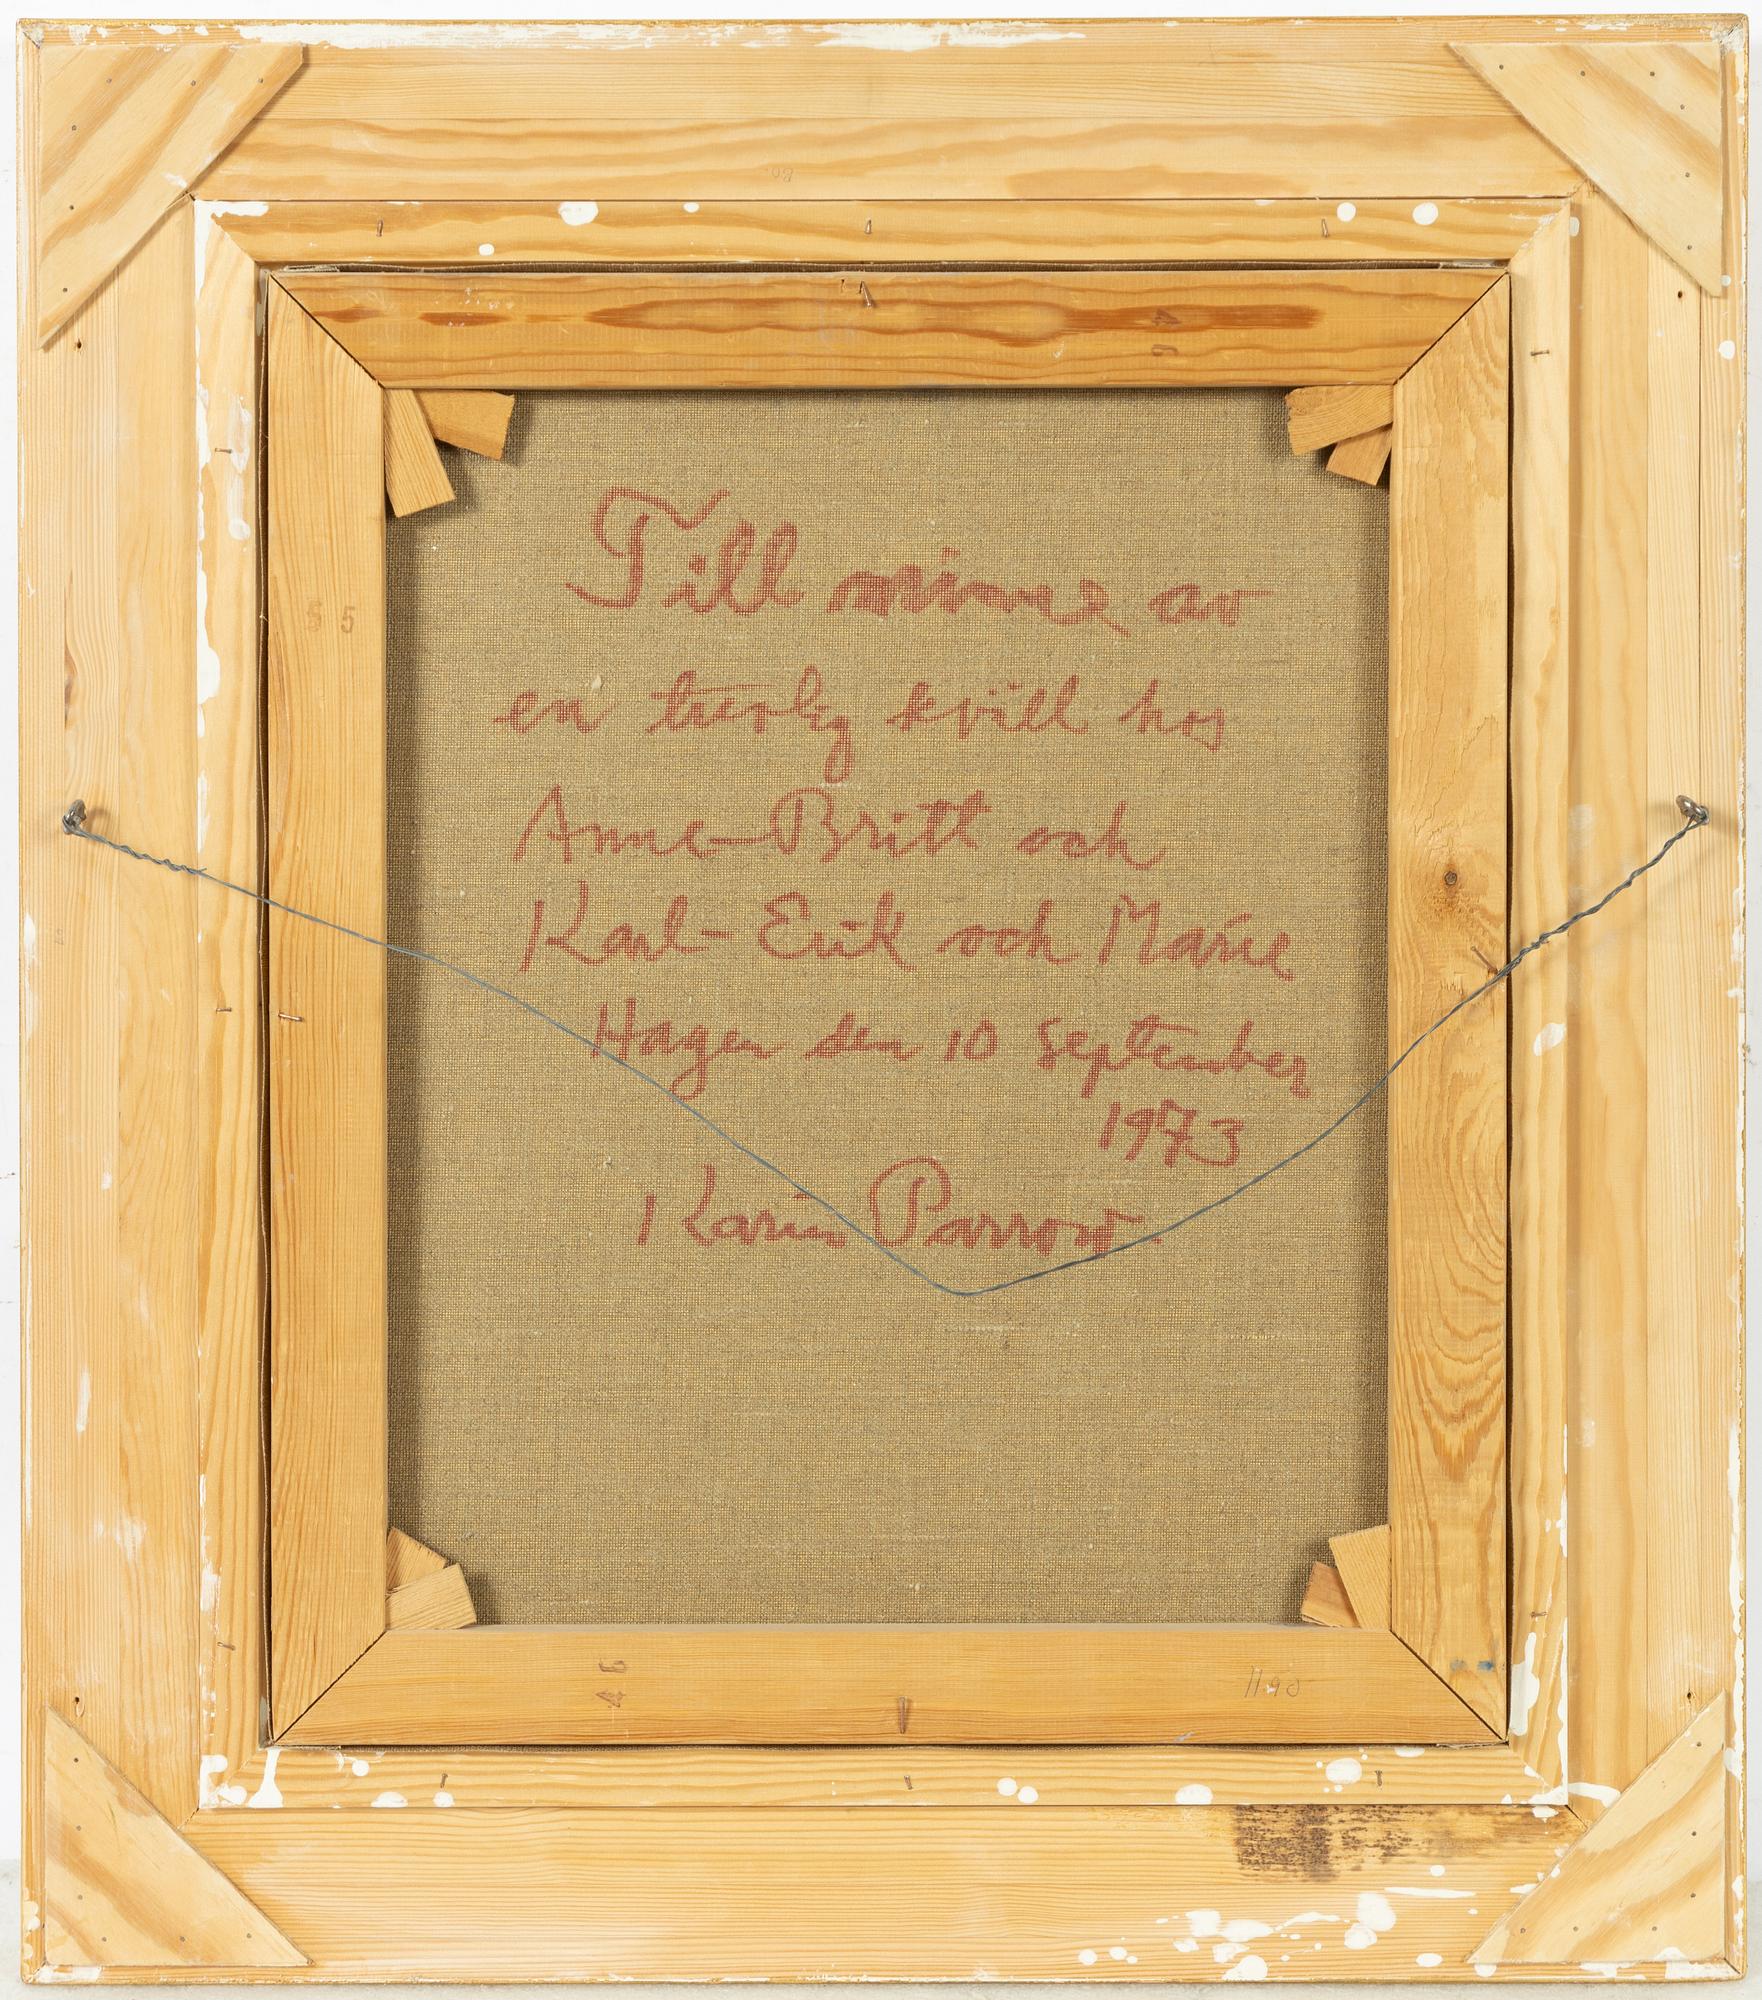 Till minne av
en trevlig kväll hos
Anne-Britt och
Karl-Erik och Marie
Hagen den 10 september
1973
Karin Parrow.
55
46
1190